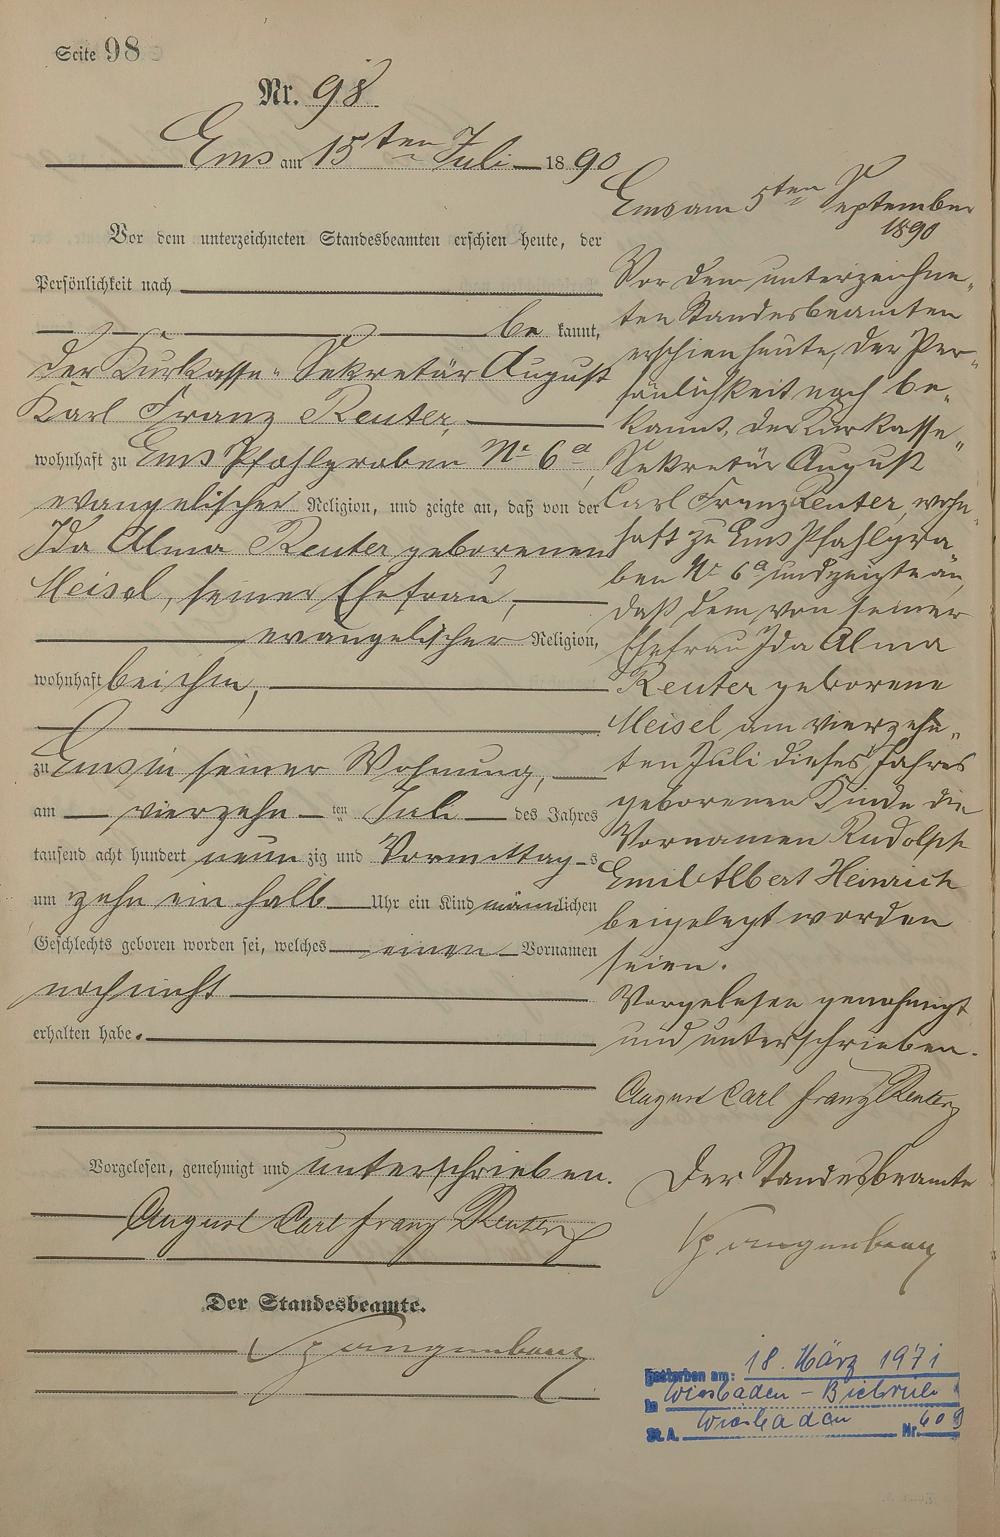 Seite 98
Nr. 98
Ems am 15ten Juli 1890
Vor dem unterzeichneten Standesbeamten erschien heute, der
Persönlichkeit nach
be kannt,
der Kurkasse-Sekretär August
Karl Franz Reuter,
wohnhaft zu Ems Pfahlgraben No 6a,
evangelischer Religion, und zeigte an, daß von der
Ida Alma Reuter geborenen
Meisel, seiner Ehefrau,
evangelischer Religion,
wohnhaft bei ihm,
zu Ems in seiner Wohnung,
am vierzehn ten Juli des Jahres
tausend acht hundert neun zig und Vormittag s
um zehn ein halb Uhr ein Kind männlichen
Geschlechts geboren worden sei, welches einen Vornamen
noch nicht
erhalten habe.
Vorgelesen, genehmigt und unterschrieben.
August Carl Franz Reuter
Der Standesbeamte.
Spangenberg
Ems am 5ten September
1890
Vor dem unterzeichne-
ten Standesbeamten
erschien heute, der Per-
sönlichkeit nach be-
kannt, der Kurkasse-
Sekretär August
Carl Franz Reuter, wohn-
haft zu Ems Pfahlgra-
ben No 6a und zeigte an,
daß dem von seiner
Ehefrau Ida Alma
Reuter geborene
Meisel am vierzehn-
ten Juli dieses Jahres
geborenen Kinde die
Vornamen Rudolph
Emil Albert Heinrich
beigelegt worden
seien.
Vorgelesen genehmigt
und unterschrieben.
August Carl Franz Reuter
Der Standesbeamte
Spangenberg
Gestorben am: 18. März 1971
in Wiesbaden - Biebrich
St. A. Wiesbaden Nr. 609